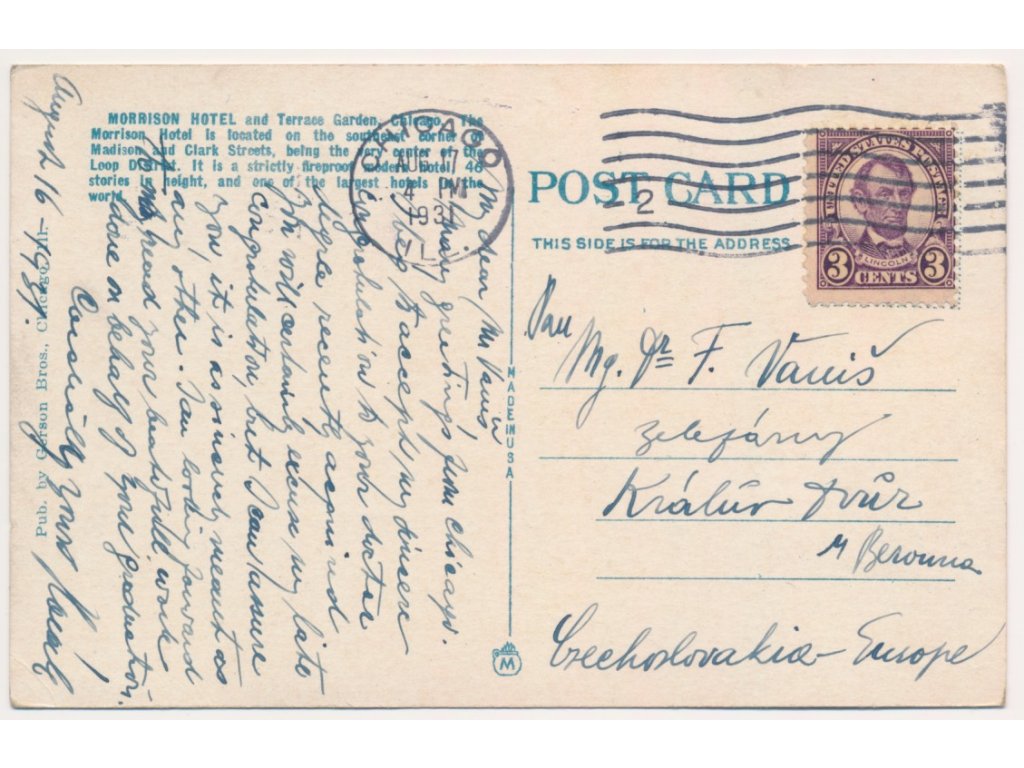 MORRISON HOTEL and Terrace Garden, Chicago. The
Morrison Hotel is located on the southeast corner of
Madison and Clark Streets, being the very center of the
Loop District. It is a strictly fireproof modern hotel 46
stories in height, and one of the largest hotels in the
world.
CHICAGO
AUG 17
4 PM
1931
ILL
2
POST CARD
THIS SIDE IS FOR THE ADDRESS
UNITED STATES POSTAGE
LINCOLN
3 CENTS 3
MADE IN U.S.A.
M
Pub. by Gerson Bros., Chicago, Ill.
August 16 – 1931.
My dear Mr Vaniš,
Many greetings from Chicago.
I beg to accept my sincere
congratulation to your doctor
degree recently acquired
You will certainly excuse my late
congratulation, but I can assure
you, it is as sincerely meant as
any other. I am looking forward
to read your beautifull work
done on behalf of your graduation.
Cordially yours
Pan
Mg. Dr F. Vaniš
železárny
Králův Dvůr
u Berouna
Czechoslovakia – Europe